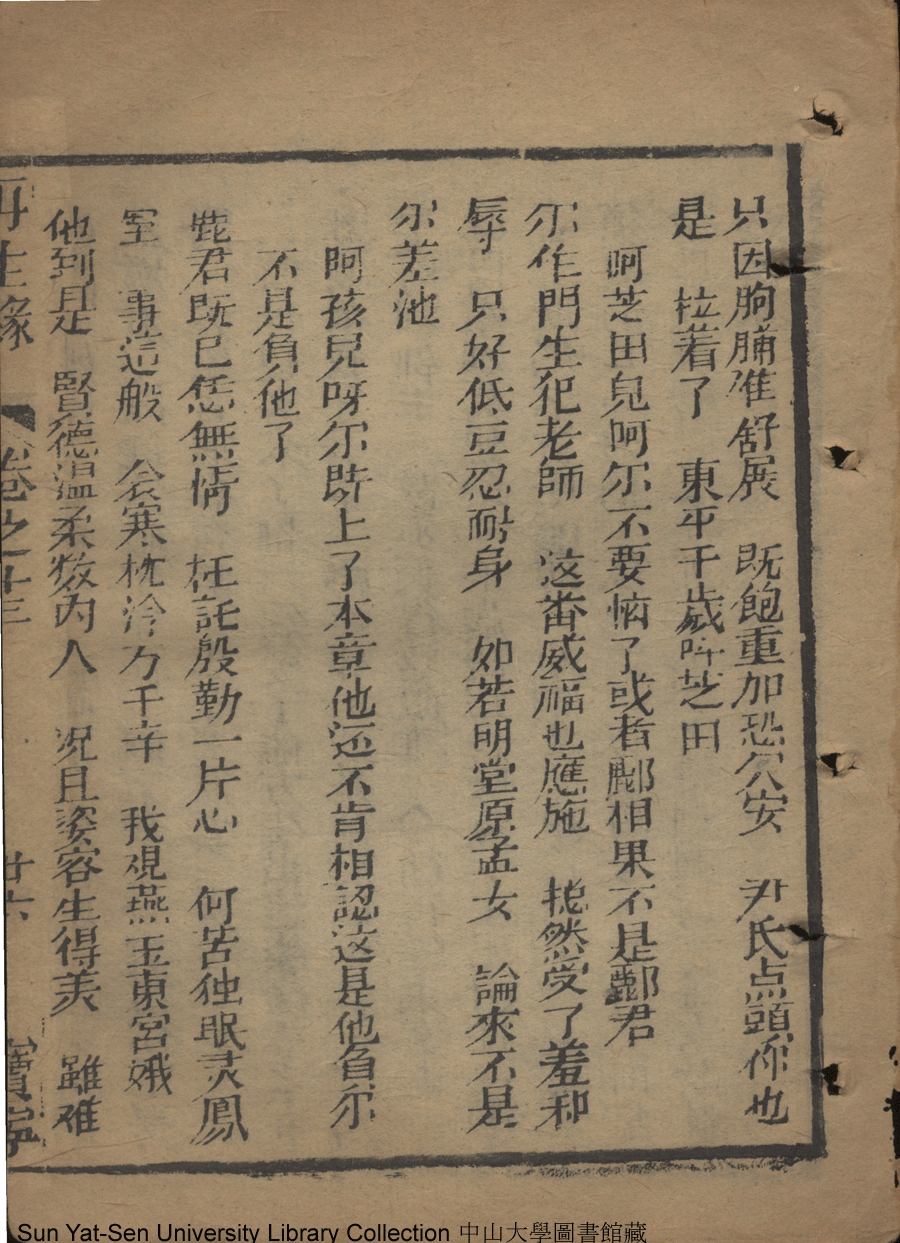 只因胸膈準舒展　既飽重加恐欠安　尹氏点頭你也
是　拉着了　東平千歲呌芝田
呵芝田兒呵尔不要惱了或者酈相果不是酈君
尔作門生犯老師　这畨威福也應施　㧾然受了羞和
辱　只好低豆忍耐身　如若明堂原孟女　論來不是
尔差池
阿孩兒呀尔既上了本章他还不肯相認这是他負尔
不是負他了
君既已恁無情　枉託殷勤一片心　何苦独眠灵鳳
室　事這般　衾寒枕冷万千辛　我覌燕玉東宮娥
他到是　賢德温柔数内人　况且姿容生得美　雖难
再生緣　卷之十三　廿六　寳寧
Sun Yat-Sen University Library Collection 中山大學圖書館藏